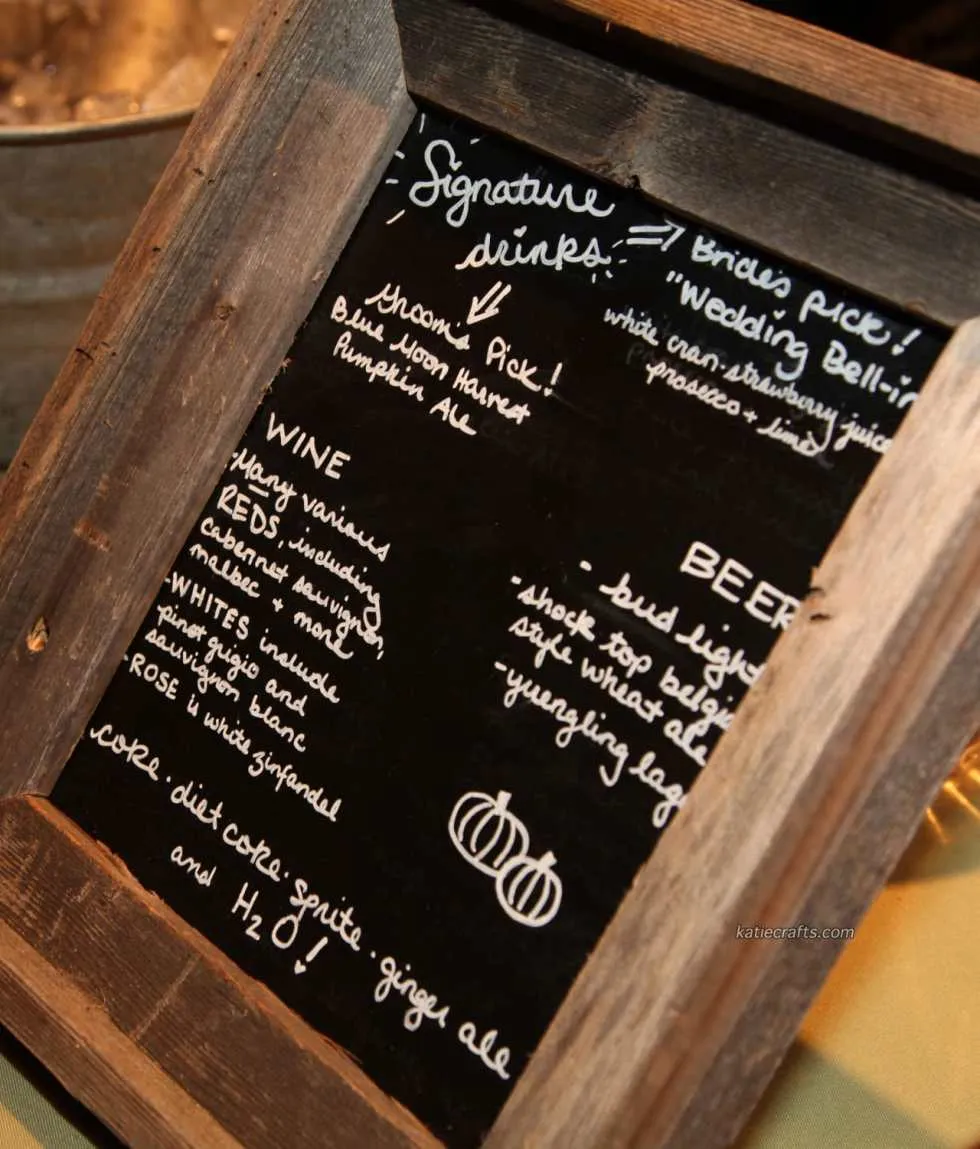 Signature
drinks
Bride's pick!
"Wedding Bell-in
white cran-strawberry juice
prosecco + lime
Groom's Pick!
Blue Moon Harvest
Pumpkin Ale
WINE
-Many various
REDS, including
cabernet sauvignon,
malbec + more
-WHITES include
pinot grigio and
sauvignon blanc
-ROSE is white zinfandel
BEER
- bud light
- shock top belgi
style wheat ale
- yuengling lag
coke · diet coke · sprite · ginger ale
and H2O!
katiecrafts.com